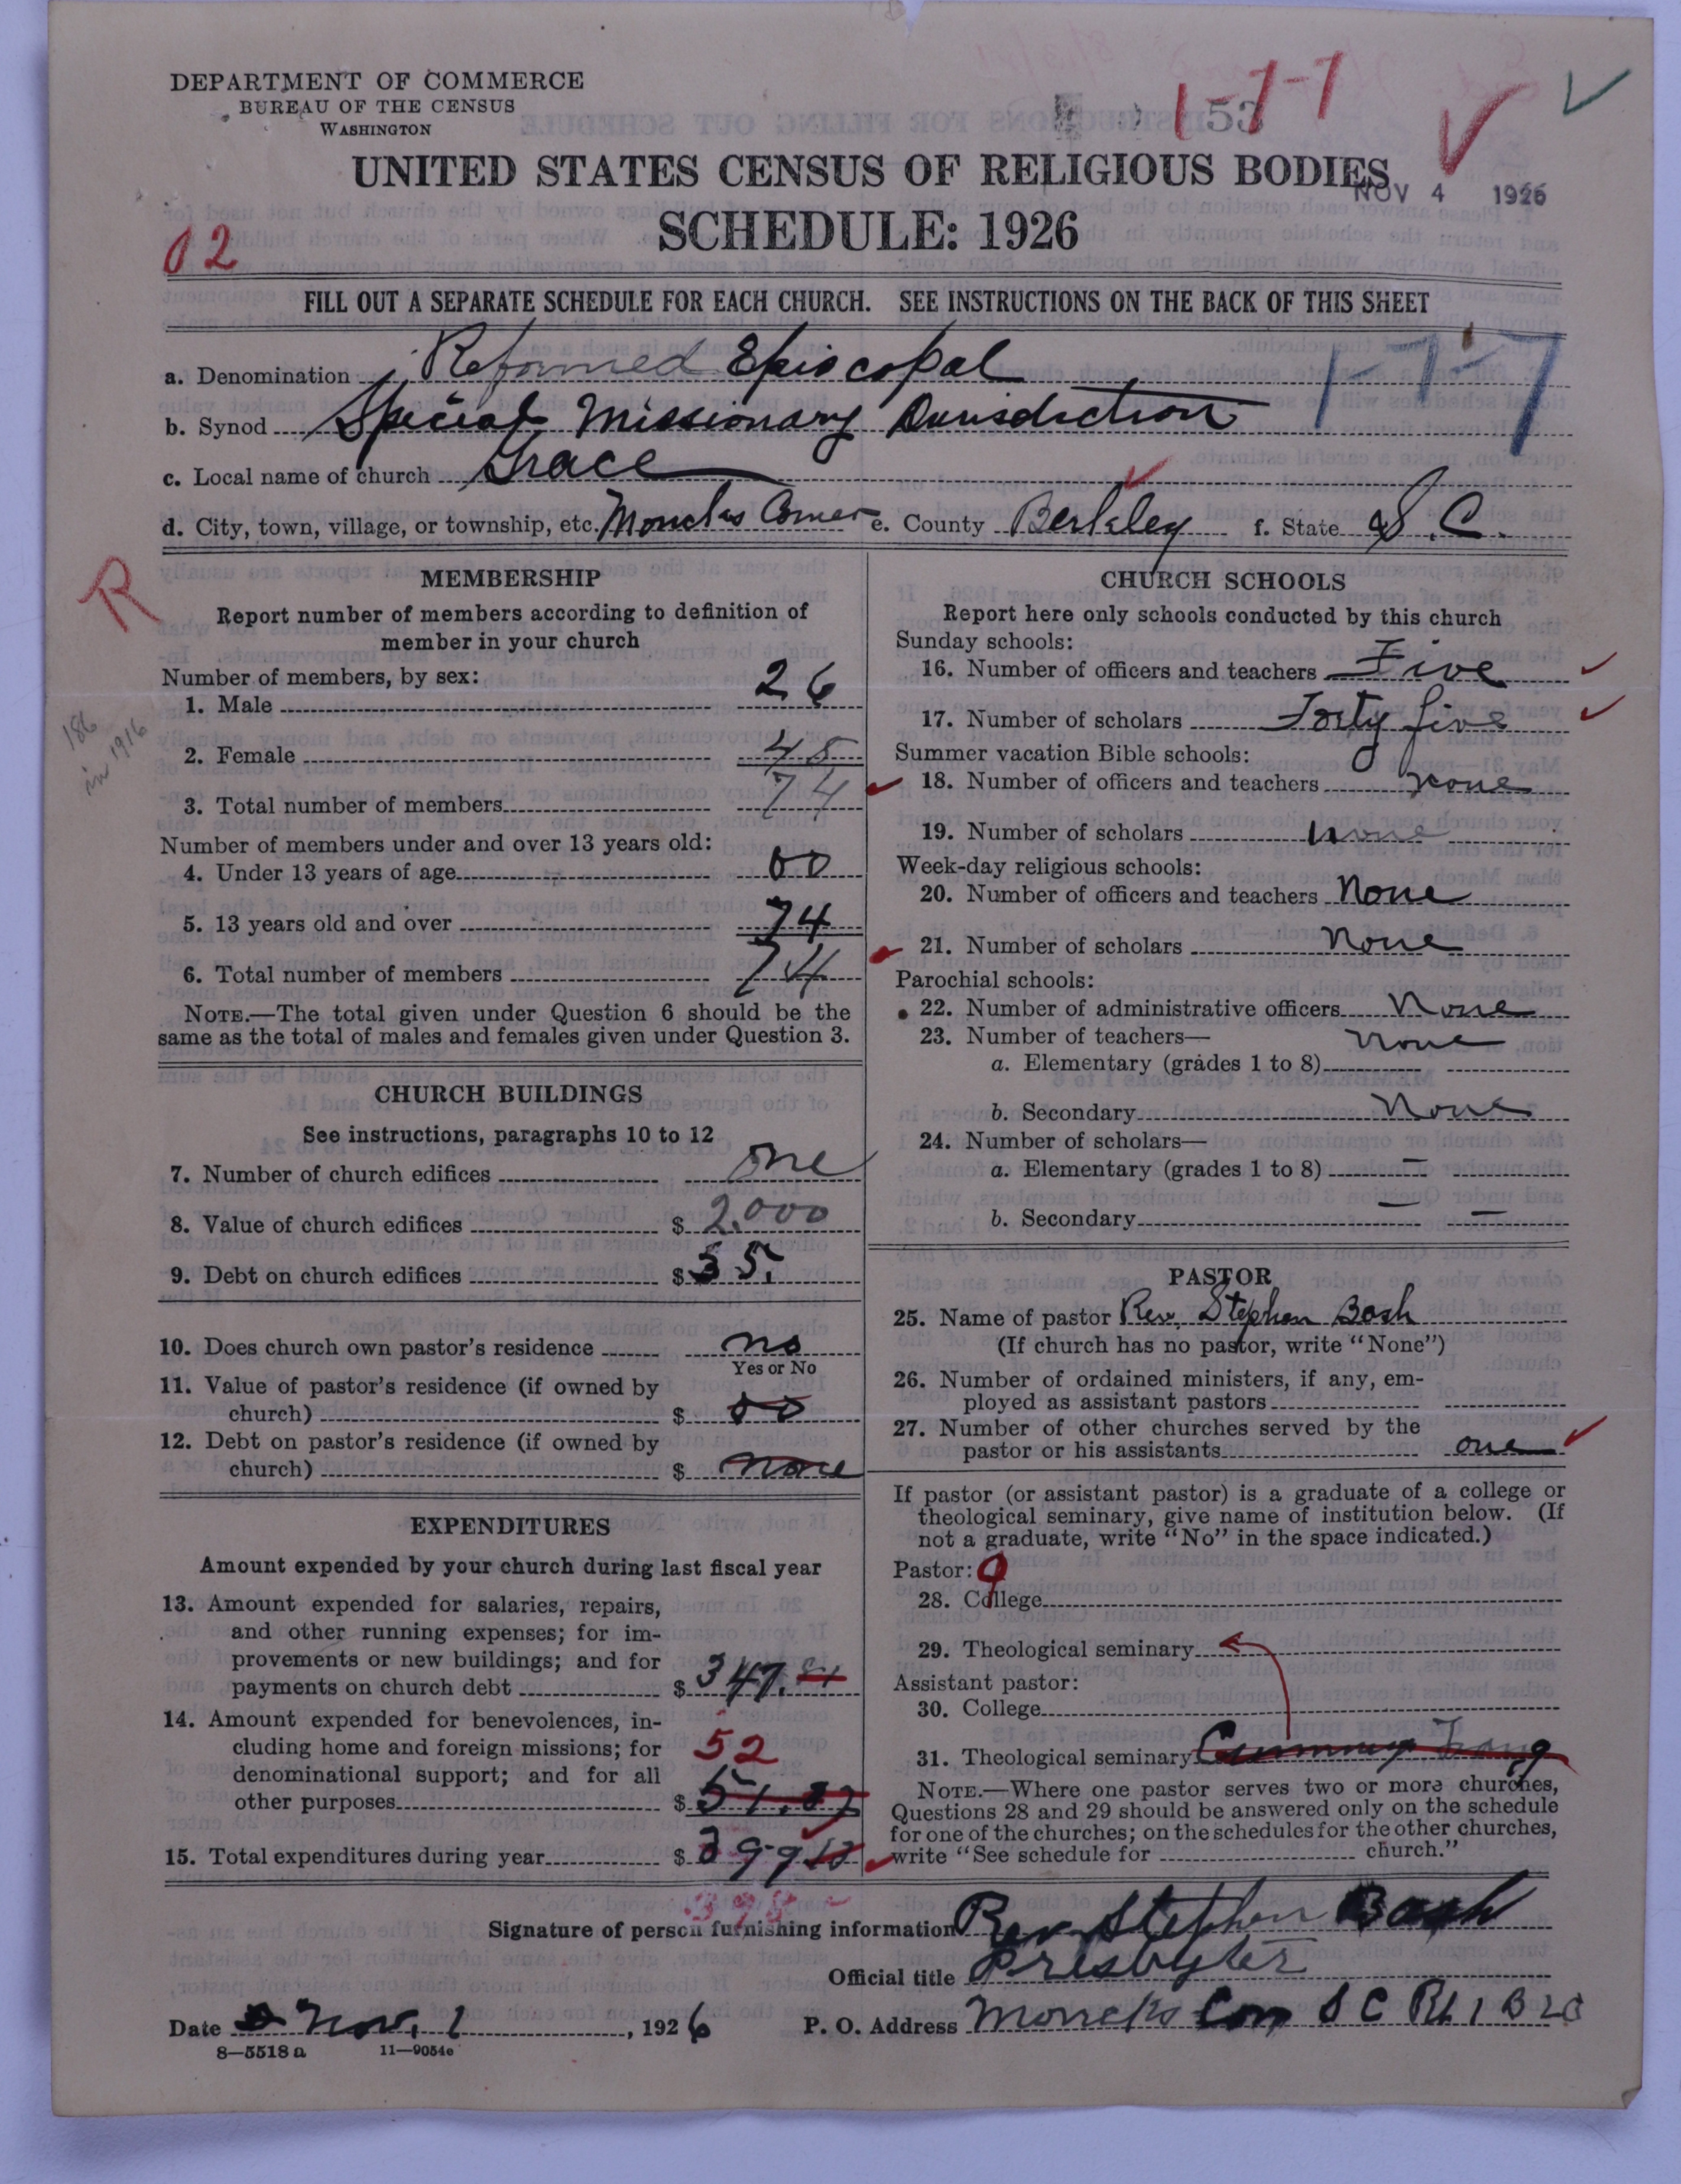 DEPARTMENT OF COMMERCE
BUREAU OF THE CENSUS
WASHINGTON
1-7-7
53
UNITED STATES CENSUS OF RELIGIOUS BODIES
NOV 4 1926
SCHEDULE: 1926
02
FILL OUT A SEPARATE SCHEDULE FOR EACH CHURCH. SEE INSTRUCTIONS ON THE BACK OF THIS SHEET
a. Denomination Reformed Episcopal
1-7-7
b. Synod Special Missionary Jurisdiction
c. Local name of church Grace
d. City, town, village, or township, etc. Moncks Corner e. County Berkeley f. State S.C.
R
186 in 1916
MEMBERSHIP
Report number of members according to definition of
member in your church
Number of members, by sex:
1. Male 26
2. Female 48
3. Total number of members 74
Number of members under and over 13 years old:
4. Under 13 years of age 00
5. 13 years old and over 74
6. Total number of members 74
NOTE.—The total given under Question 6 should be the
same as the total of males and females given under Question 3.
CHURCH BUILDINGS
See instructions, paragraphs 10 to 12
7. Number of church edifices one
8. Value of church edifices $ 2,000
9. Debt on church edifices $ 35.
10. Does church own pastor's residence no
Yes or No
11. Value of pastor's residence (if owned by
church) $ 00
12. Debt on pastor's residence (if owned by
church) $ none
EXPENDITURES
Amount expended by your church during last fiscal year
13. Amount expended for salaries, repairs,
and other running expenses; for im-
provements or new buildings; and for
payments on church debt $ 347.
14. Amount expended for benevolences, in-
cluding home and foreign missions; for
denominational support; and for all
other purposes $ 51.87
52
15. Total expenditures during year $ 399
CHURCH SCHOOLS
Report here only schools conducted by this church
Sunday schools:
16. Number of officers and teachers Five
17. Number of scholars Forty five
Summer vacation Bible schools:
18. Number of officers and teachers none
19. Number of scholars none
Week-day religious schools:
20. Number of officers and teachers None
21. Number of scholars None
Parochial schools:
22. Number of administrative officers None
23. Number of teachers—
a. Elementary (grades 1 to 8) None
b. Secondary None
24. Number of scholars—
a. Elementary (grades 1 to 8) —
b. Secondary — —
PASTOR
25. Name of pastor Rev. Stephen Bash
(If church has no pastor, write "None")
26. Number of ordained ministers, if any, em-
ployed as assistant pastors
27. Number of other churches served by the
pastor or his assistants one
If pastor (or assistant pastor) is a graduate of a college or
theological seminary, give name of institution below. (If
not a graduate, write "No" in the space indicated.)
Pastor: 9
28. College
29. Theological seminary
Assistant pastor:
30. College
31. Theological seminary
NOTE.—Where one pastor serves two or more churches,
Questions 28 and 29 should be answered only on the schedule
for one of the churches; on the schedules for the other churches,
write "See schedule for church."
398
Signature of person furnishing information Rev Stephen Bash
Official title Presbyter
Date Nov. 1, 1926
P. O. Address Moncks Con S C Rt 1 B 20
8—5518 a 11—9054e